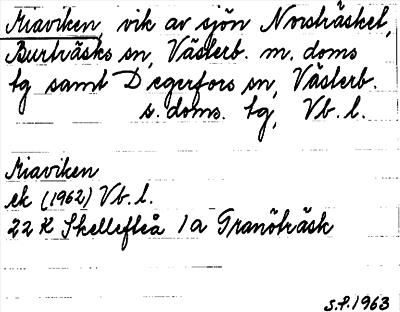 Miaviken, vik av sjön Norsträsket,
Burträsks sn, Västerb. m. doms
tg samt Degerfors sn, Västerb.
s. doms. tg, Vb. l.
Miaviken
ek (1962) Vb. l.
22 K Skellefteå 1a Granöträsk
S.P. 1963